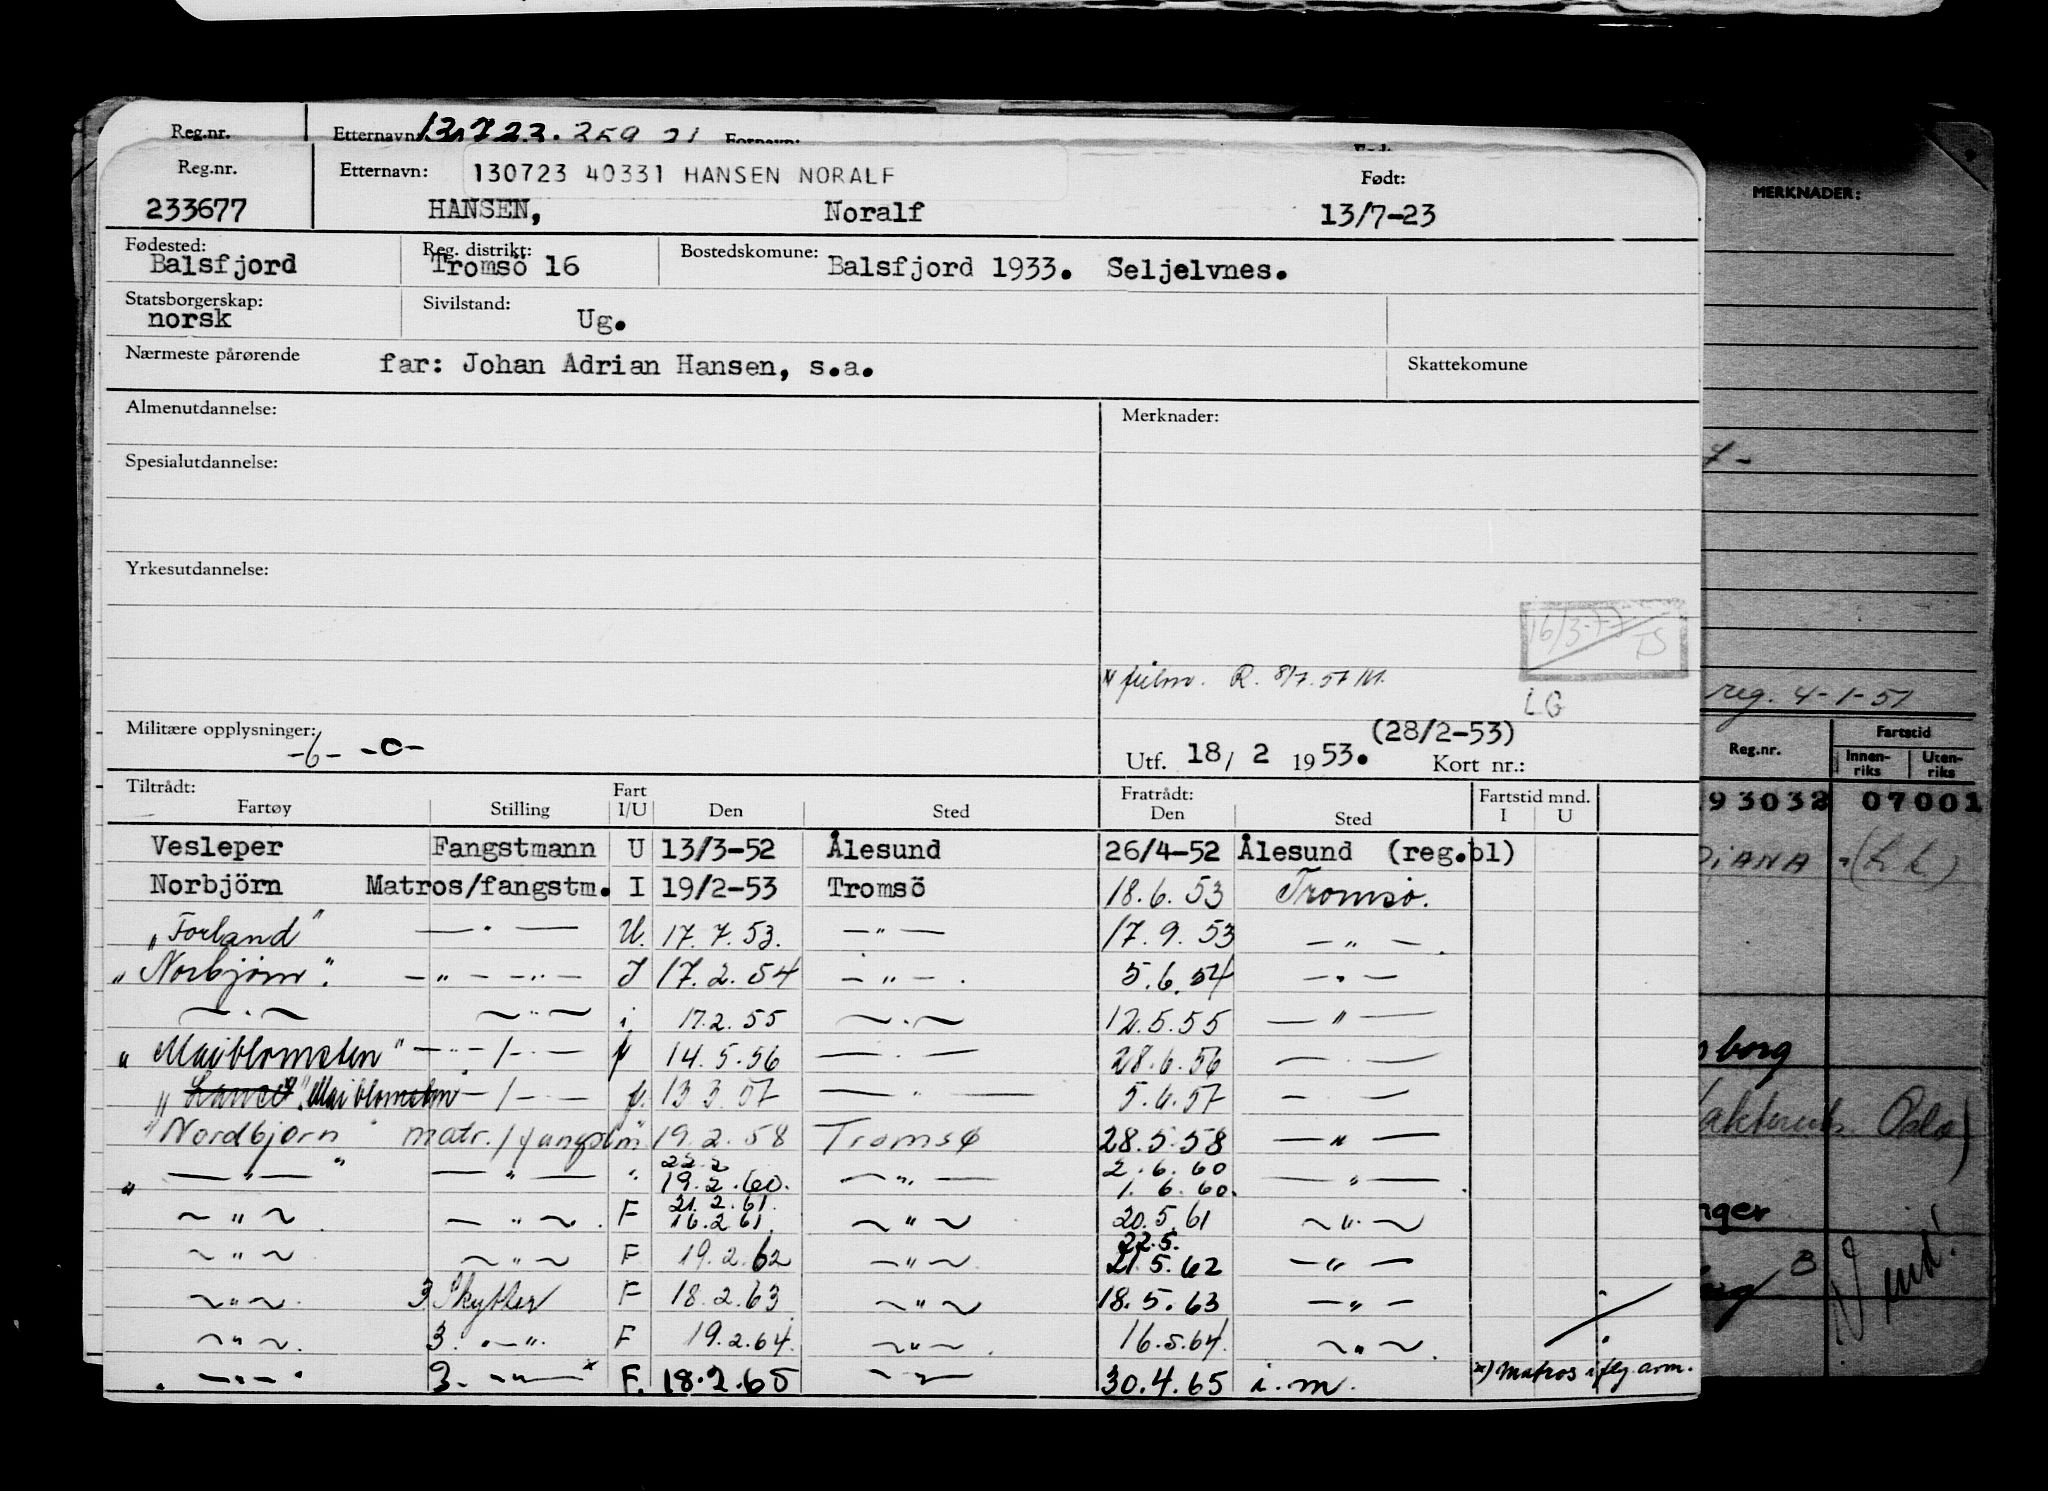 Reg.nr. Etternavn: 13.7.23. 359 21 Fornavn:
Reg.nr. Etternavn: 130723 40331 HANSEN NORALF Født:
233677 HANSEN, Noralf 13/7-23
Fødested: Reg. distrikt: Bostedskomune:
Balsfjord Tromsö 16 Balsfjord 1933. Seljelvnes.
Statsborgerskap: Sivilstand:
norsk Ug.
Nærmeste pårørende far: Johan Adrian Hansen, s.a. Skattekomune
Almenutdannelse: Merknader:
Spesialutdannelse:
Yrkesutdannelse:
16/3-77 TS
film. R. 8/7.57
LG
Militære opplysninger: -6- -o- (28/2-53)
Utf. 18/ 2 1953. Kort nr.:
Tiltrådt: Fart Fratrådt: Fartstid mnd.
Fartøy Stilling I/U Den Sted Den Sted I U
Vesleper Fangstmann U 13/3-52 Ålesund 26/4-52 Ålesund (reg.bl)
Norbjörn Matros/fangstm. I 19/2-53 Tromsö 18.6.53 Tromsø.
"Forland" — " — U. 17.7.53. — " — 17.9.53 — " —.
"Norbjørn". — " — — " — I 17.2.54 — " —. 5.6.54 — " —
— " — — " — i 17.2.55 — " — 12.5.55 — " —
"Maiblomsten" — " — / — " — 14.5.56 — " — 28.6.56 — " —
" "Maiblomsten — / — " — 13.3.57 — " — 5.6.57 — " —
"Nordbjørn" matr./fangstm " 19.2.58 Tromsø 28.5.58 — " —
22.2 2.6.60
" — " — " — " — " 19.2.60. — " — 1.6.60. — " —.
21.2.61.
— " —. — " —. F 16.2.61 — " — 20.5.61 — " —
22.5.
— " — — " — F 19.2.62 — " — 21.5.62 — " —
— " —. 3 Skytter F 18.2.63 — " — 18.5.63 — " —
— " —. 3. — " —. F 19.2.64. — " —. 16.5.64. — " —.
— " — 3. — " — x F. 18.2.65 — " — 30.4.65 i.m. x) Matros i flg. arm.
MERKNADER:
7-
reg. 4-1-51
Reg.nr. Fartstid
Innen-riks Uten-riks
93032 07001
DIANA
borg
Oslo)
nger
B
Vend!